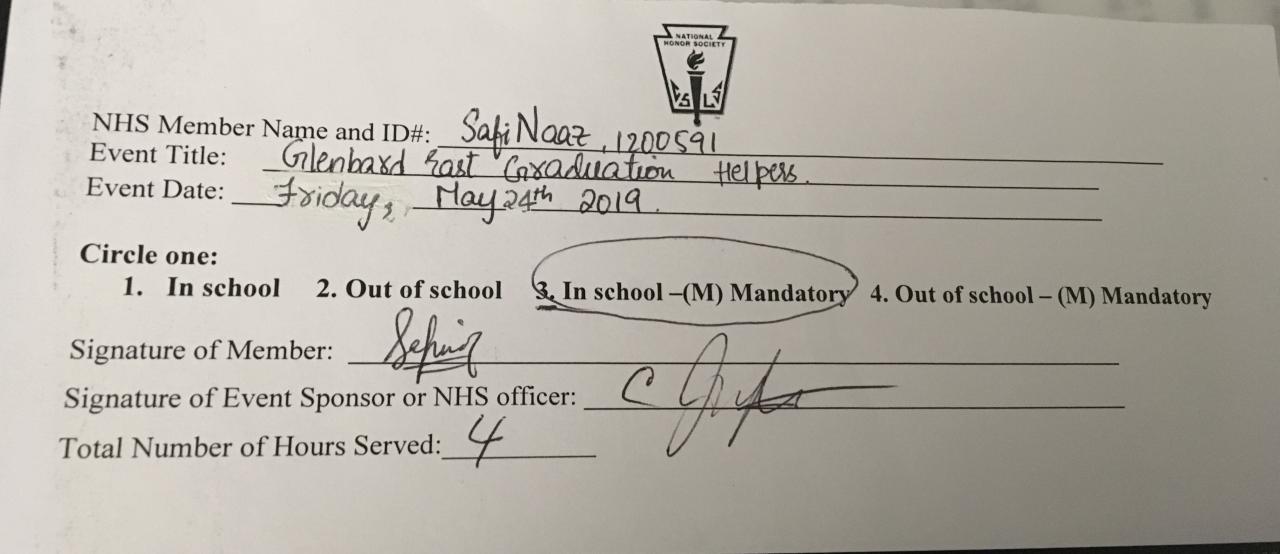 NATIONAL
HONOR SOCIETY
S L S
NHS Member Name and ID#: Safi Naaz, 1200591
Event Title: Glenbard East Graduation Helpers.
Event Date: Friday, May 24th 2019.
Circle one:
1. In school 2. Out of school 3. In school –(M) Mandatory 4. Out of school – (M) Mandatory
Signature of Member:
Signature of Event Sponsor or NHS officer: C
Total Number of Hours Served: 4